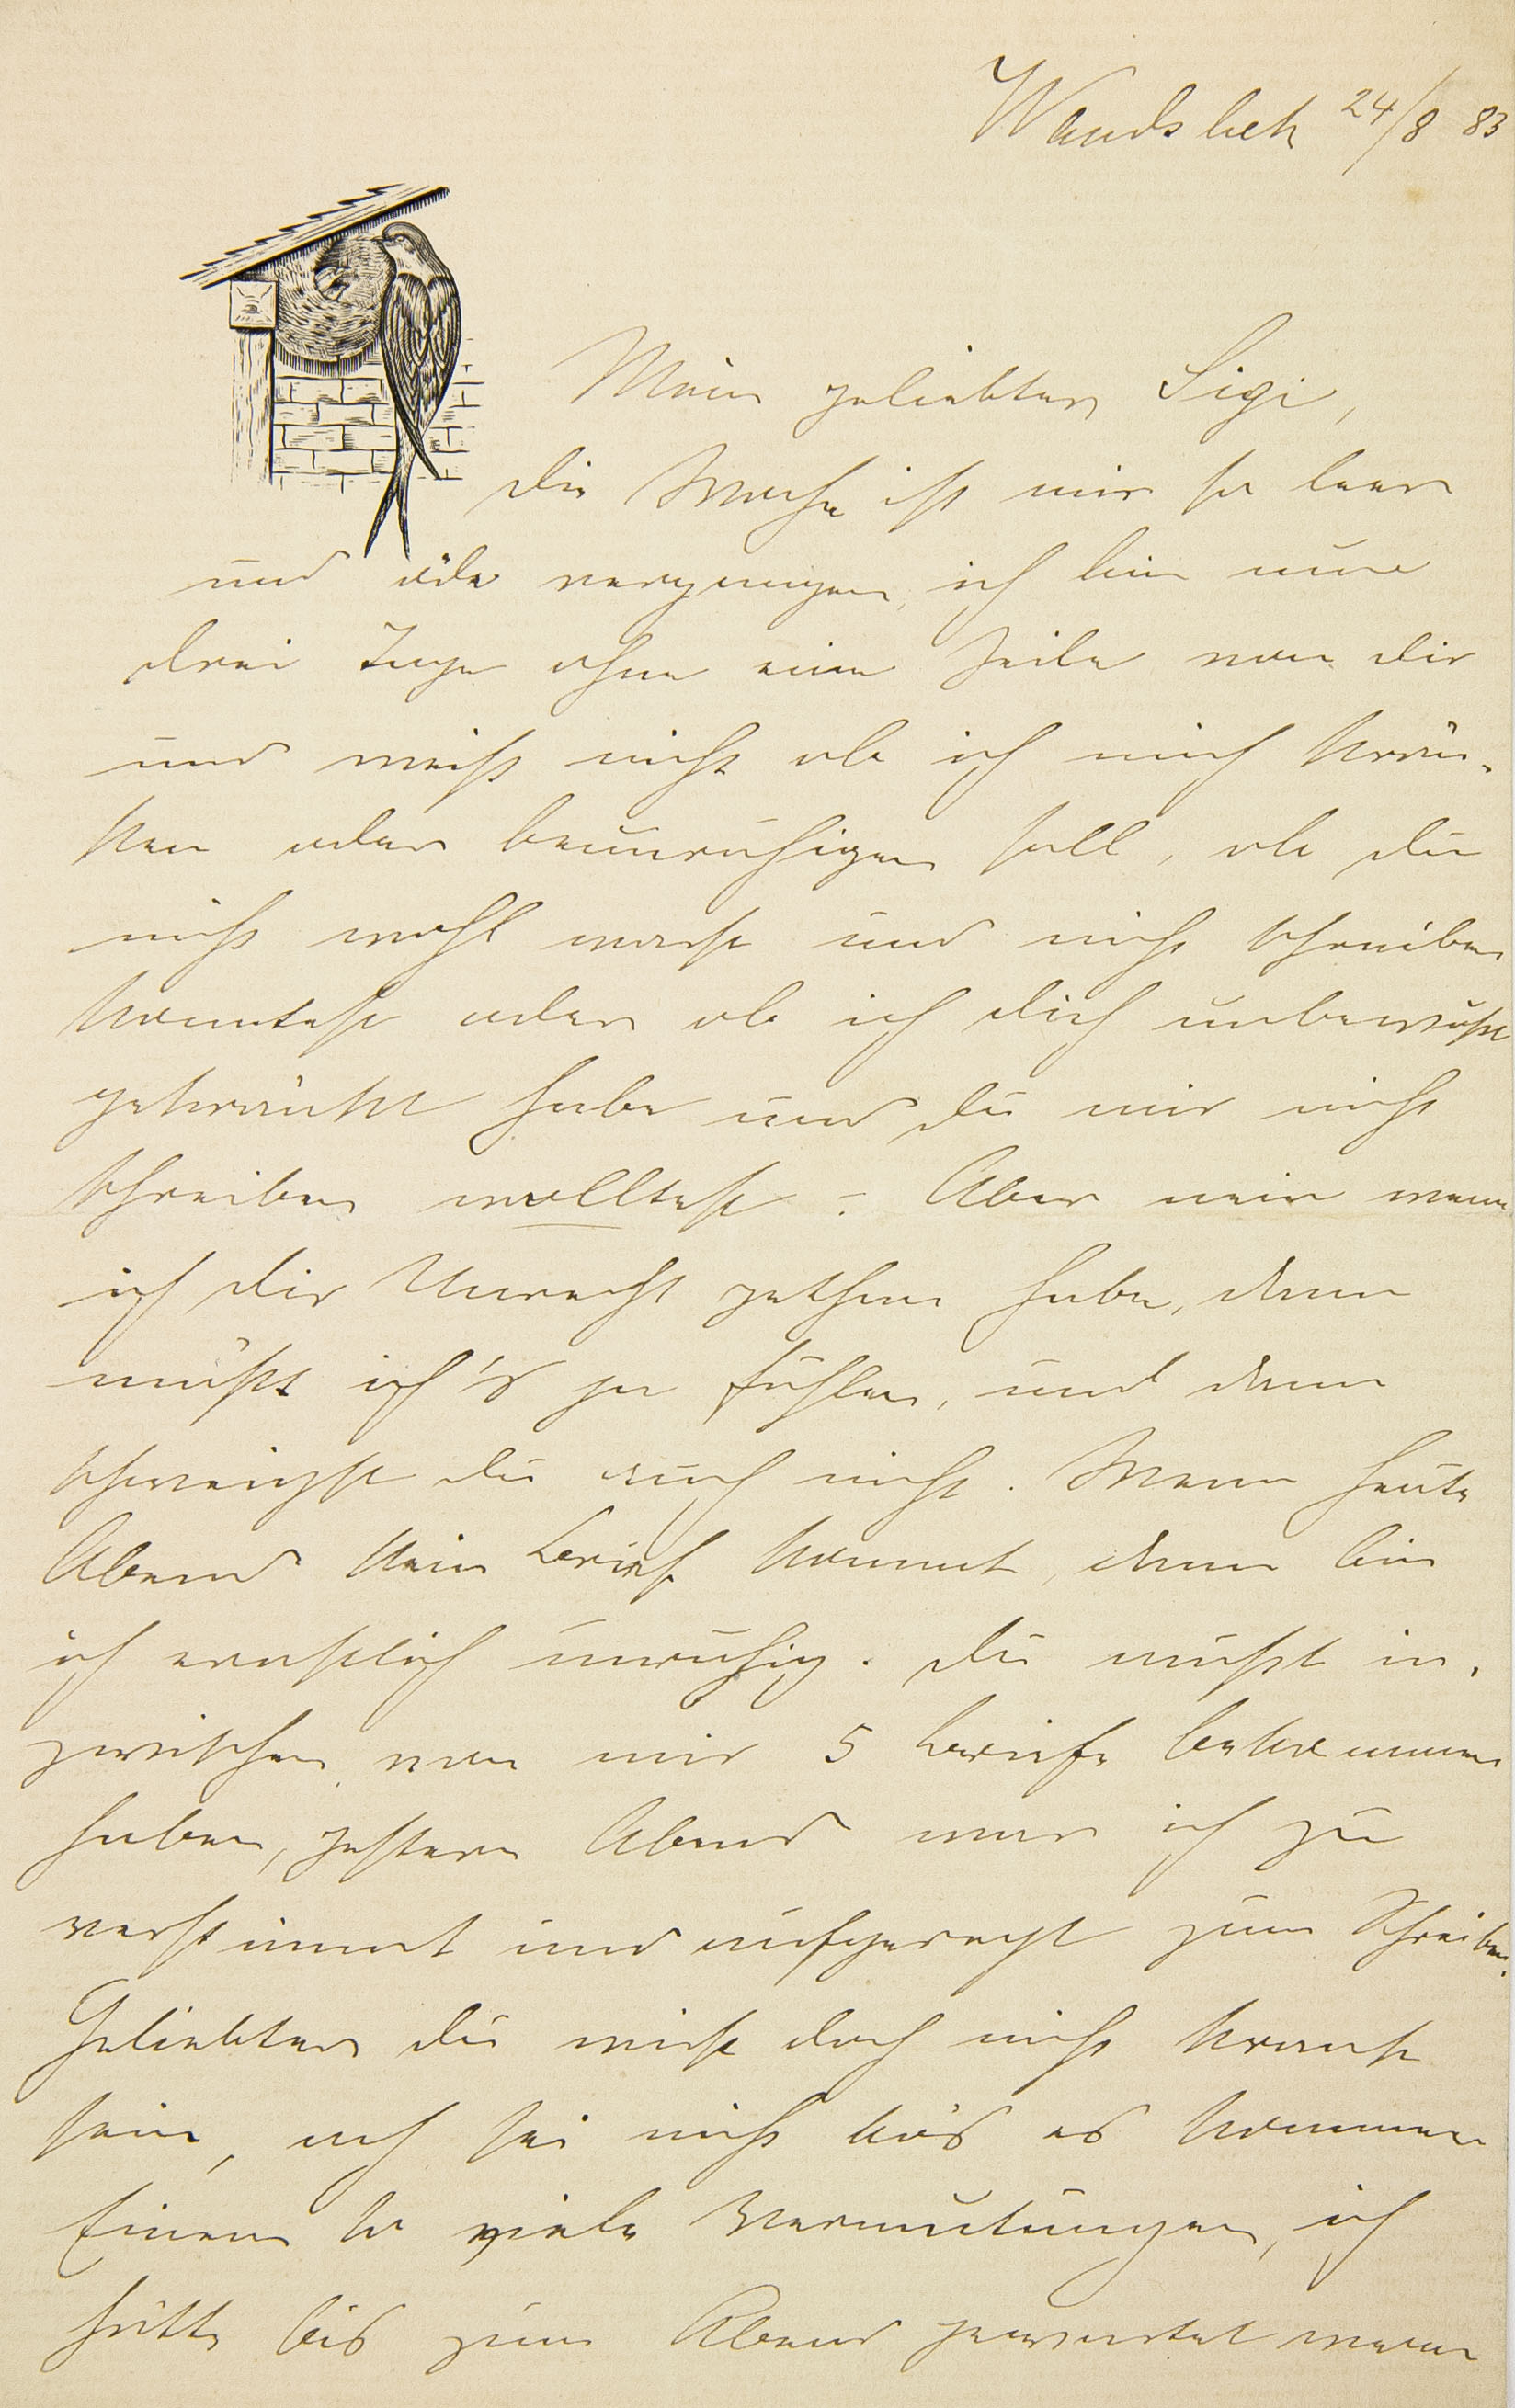 Wandsbek 24/8 83
Mein geliebter Sigi,
die Woche ist mir so leer
und öde vergangen, ich bin nun
drei Tage ohne eine Zeile von dir
und weiß nicht ob ich mich krän-
ken oder beunruhigen soll, ob du
nicht wohl warst und nicht schreiben
konntest oder ob ich dich unbewußt
gekränkt habe und du mir nicht
schreiben wolltest -. Aber nein wenn
ich dir Unrecht gethan habe, dann
müßt ich's ja fühlen, und dann
schweigst du auch nicht. Wenn heute
Abend kein Brief kommt, dann bin
ich ernstlich unruhig. Du mußt in-
zwischen von mir 5 Briefe bekommen
haben, gestern Abend war ich zu
verstimmt und aufgeregt zum Schreiben.
Geliebter du wirst doch nicht krank
sein, ach sei nicht bös es kommen
Einem so viele Vermutungen, ich
hätte bis zum Abend gewartet wenn